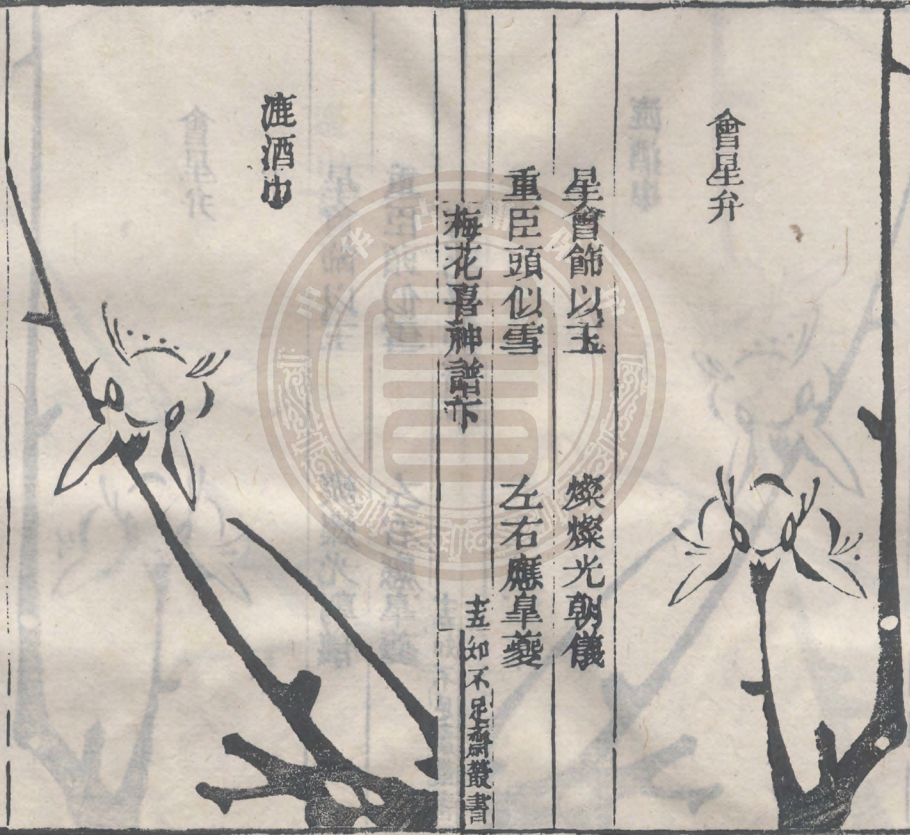 會星弁
星會飾以玉
燦燦光朝儀
重臣頭似雪
左右應皐夔
梅花喜神譜下
十五
知不足齋叢書
漉酒巾